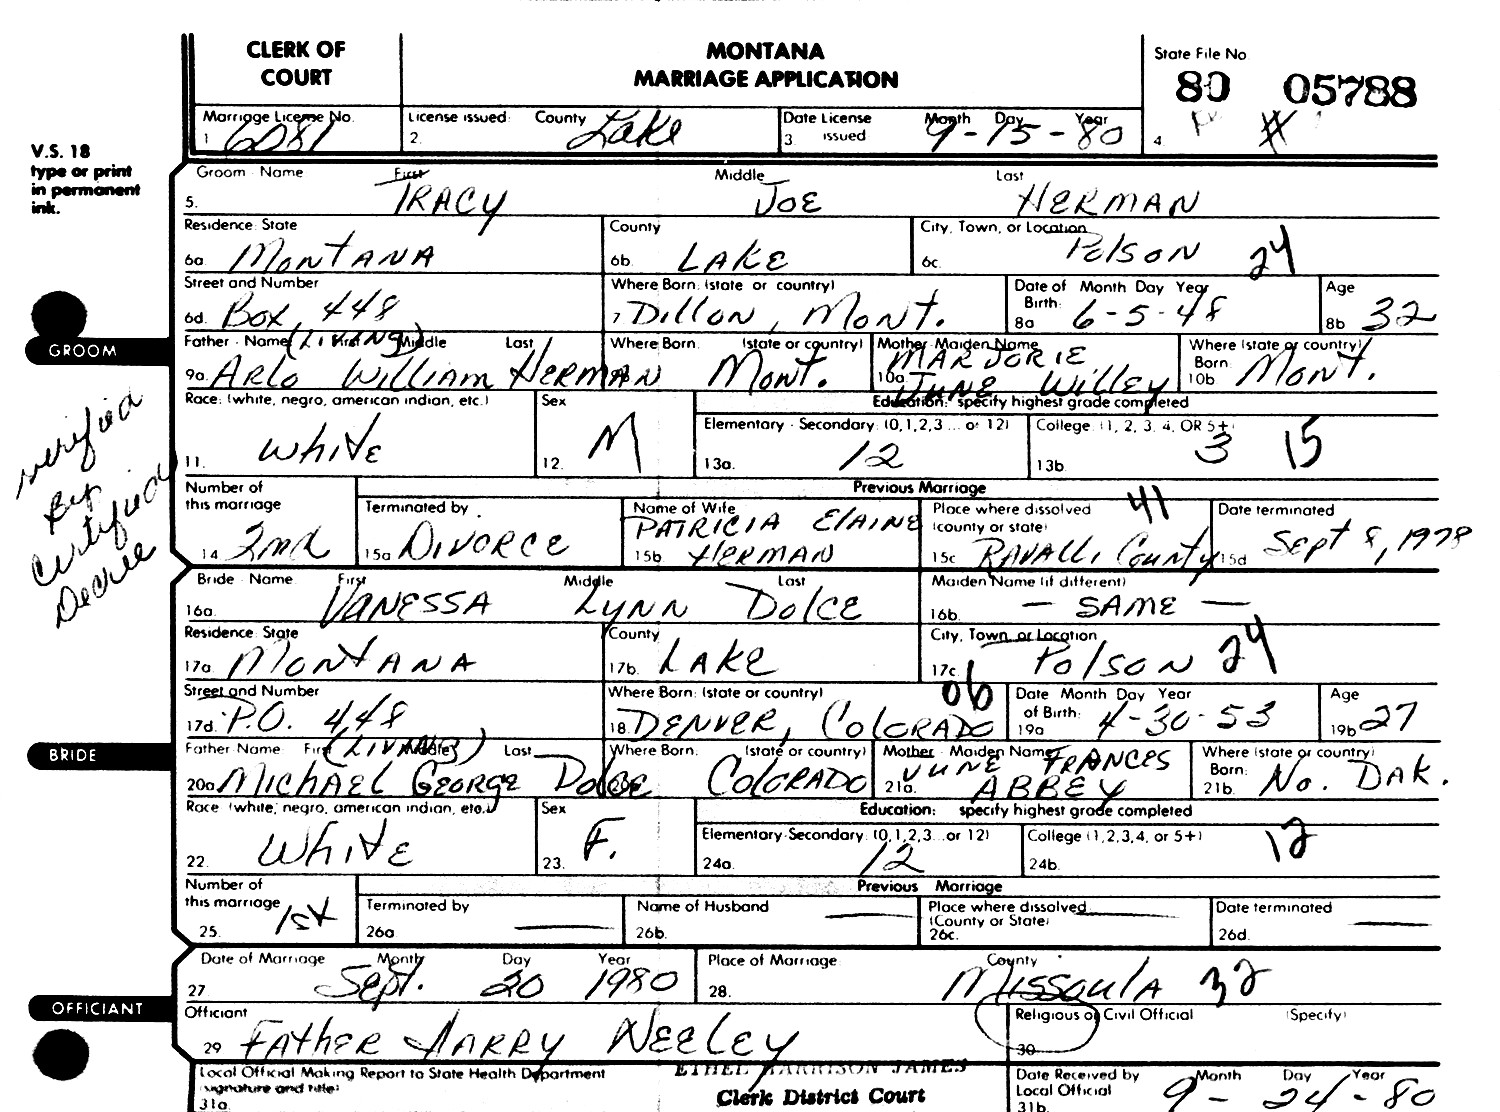 CLERK OF COURT
MONTANA
MARRIAGE APPLICATION
State File No.
80 05788
Marriage License No.
1 6081
License issued: County
2. Lake
Date License issued Month Day Year
3 9-15-80
4. #
V.S. 18
type or print
in permanent
ink.
Groom - Name First Middle Last
5. TRACY JOE HERMAN
Residence: State County City, Town, or Location
6a. MONTANA 6b. LAKE 6c. POLSON 24
Street and Number Where Born: (state or country) Date of Birth: Month Day Year Age
6d. Box 448 7 Dillon, Mont. 8a 6-5-48 8b 32
GROOM
Father - Name First Middle Last (LIVING) Where Born: (state or country) Mother - Maiden Name Where (state or country) Born:
9a. ARLO WILLIAM HERMAN Mont. 10a MARJORIE JUNE WILLEY 10b Mont.
Race: (white, negro, american indian, etc.) Sex Education: specify highest grade completed
Elementary - Secondary: (0,1,2,3 ... or 12) College: (1, 2, 3, 4, OR 5+)
11. White 12. M 13a. 12 13b. 3 15
Verified
By
Certified
Decree
Number of this marriage Previous Marriage
Terminated by Name of Wife Place where dissolved (county or state) 41 Date terminated
14 2nd 15a DIVORCE 15b PATRICIA ELAINE HERMAN 15c RAVALLI COUNTY 15d Sept 8, 1978
Bride - Name First Middle Last Maiden Name (if different)
16a. VANESSA LYNN DOLCE 16b. — SAME —
Residence: State County City, Town, or Location
17a MONTANA 17b. LAKE 17c POLSON 24
Street and Number Where Born: (state or country) 06 Date of Birth: Month Day Year Age
17d. P.O. 448 18. DENVER, COLORADO 19a 4-30-53 19b 27
BRIDE
Father - Name First Middle Last (LIVING) Where Born: (state or country) Mother - Maiden Name Where (state or country) Born:
20a MICHAEL GEORGE DOLCE COLORADO 21a. JUNE FRANCES ABBEY 21b. No. DAK.
Race (white, negro, american indian, etc.) Sex Education: specify highest grade completed
Elementary - Secondary: (0,1,2,3...or 12) College (1,2,3,4, or 5+)
22. White 23. F. 24a. 12 24b. 12
Number of this marriage Previous Marriage
Terminated by Name of Husband Place where dissolved (County or State) Date terminated
25. 1st 26a — 26b. — 26c. — 26d. —
Date of Marriage Month Day Year Place of Marriage County
27 Sept. 20 1980 28. MISSOULA 32
OFFICIANT
Officiant Religious or Civil Official (Specify)
29 FATHER HARRY NEELEY 30
Local Official Making Report to State Health Department
(signature and title)
31a
ETHEL HARRISON JAMES
Clerk District Court
Date Received by Local Official Month Day Year
31b. 9-24-80